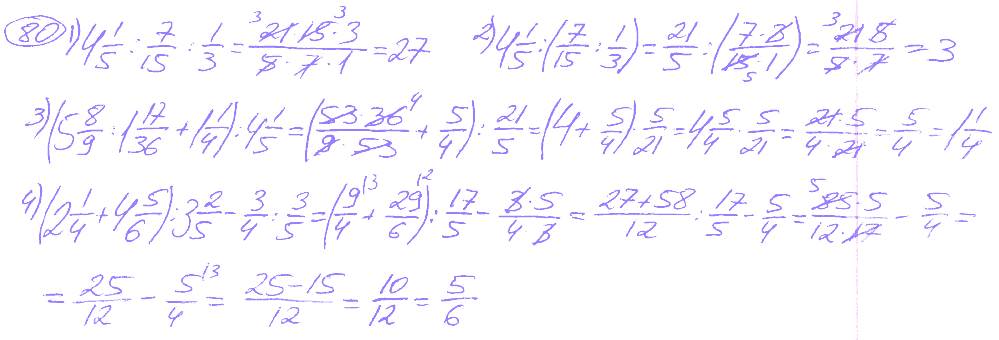 80 1) 4 1/5 : 7/15 : 1/3 = (21·15·3)/(5·7·1) = 27 2) 4 1/5 : (7/15 : 1/3) = 21/5 : (7·3/15·1) = (21·5)/(5·7) = 3
3) (5 8/9 : 1 17/36 + 1 1/4) : 4 1/5 = (53·36/9·53 + 5/4) : 21/5 = (4 + 5/4) · 5/21 = 4 5/4 · 5/21 = (21·5)/(4·21) = 5/4 = 1 1/4
4) (2 1/4 + 4 5/6) : 3 2/5 - 3/4 : 3/5 = (9/4 + 29/6) : 17/5 - (3·5)/(4·3) = (27+58)/12 : 17/5 - 5/4 = (85·5)/(12·17) - 5/4 =
= 25/12 - 5/4 = (25-15)/12 = 10/12 = 5/6